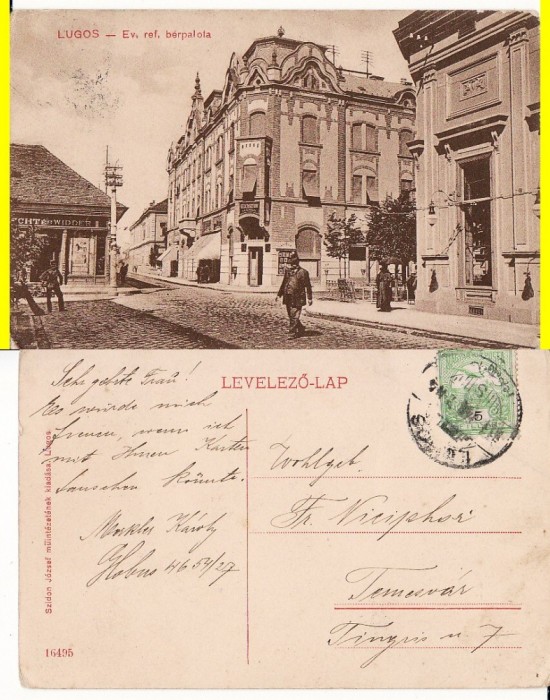 LUGOS — Ev. ref. bérpalota
CHTER WIDDER
LEVELEZŐ-LAP
Sehr geehrte Frau!
Es würde mich
freuen, wenn ich
mit Ihnen Karten
tauschen könnte.
Károly
Wohlgeb.
Fr. Niciphor
Temesvár
u 7
Szidon József műintézetének kiadása, Lugos
16495
5